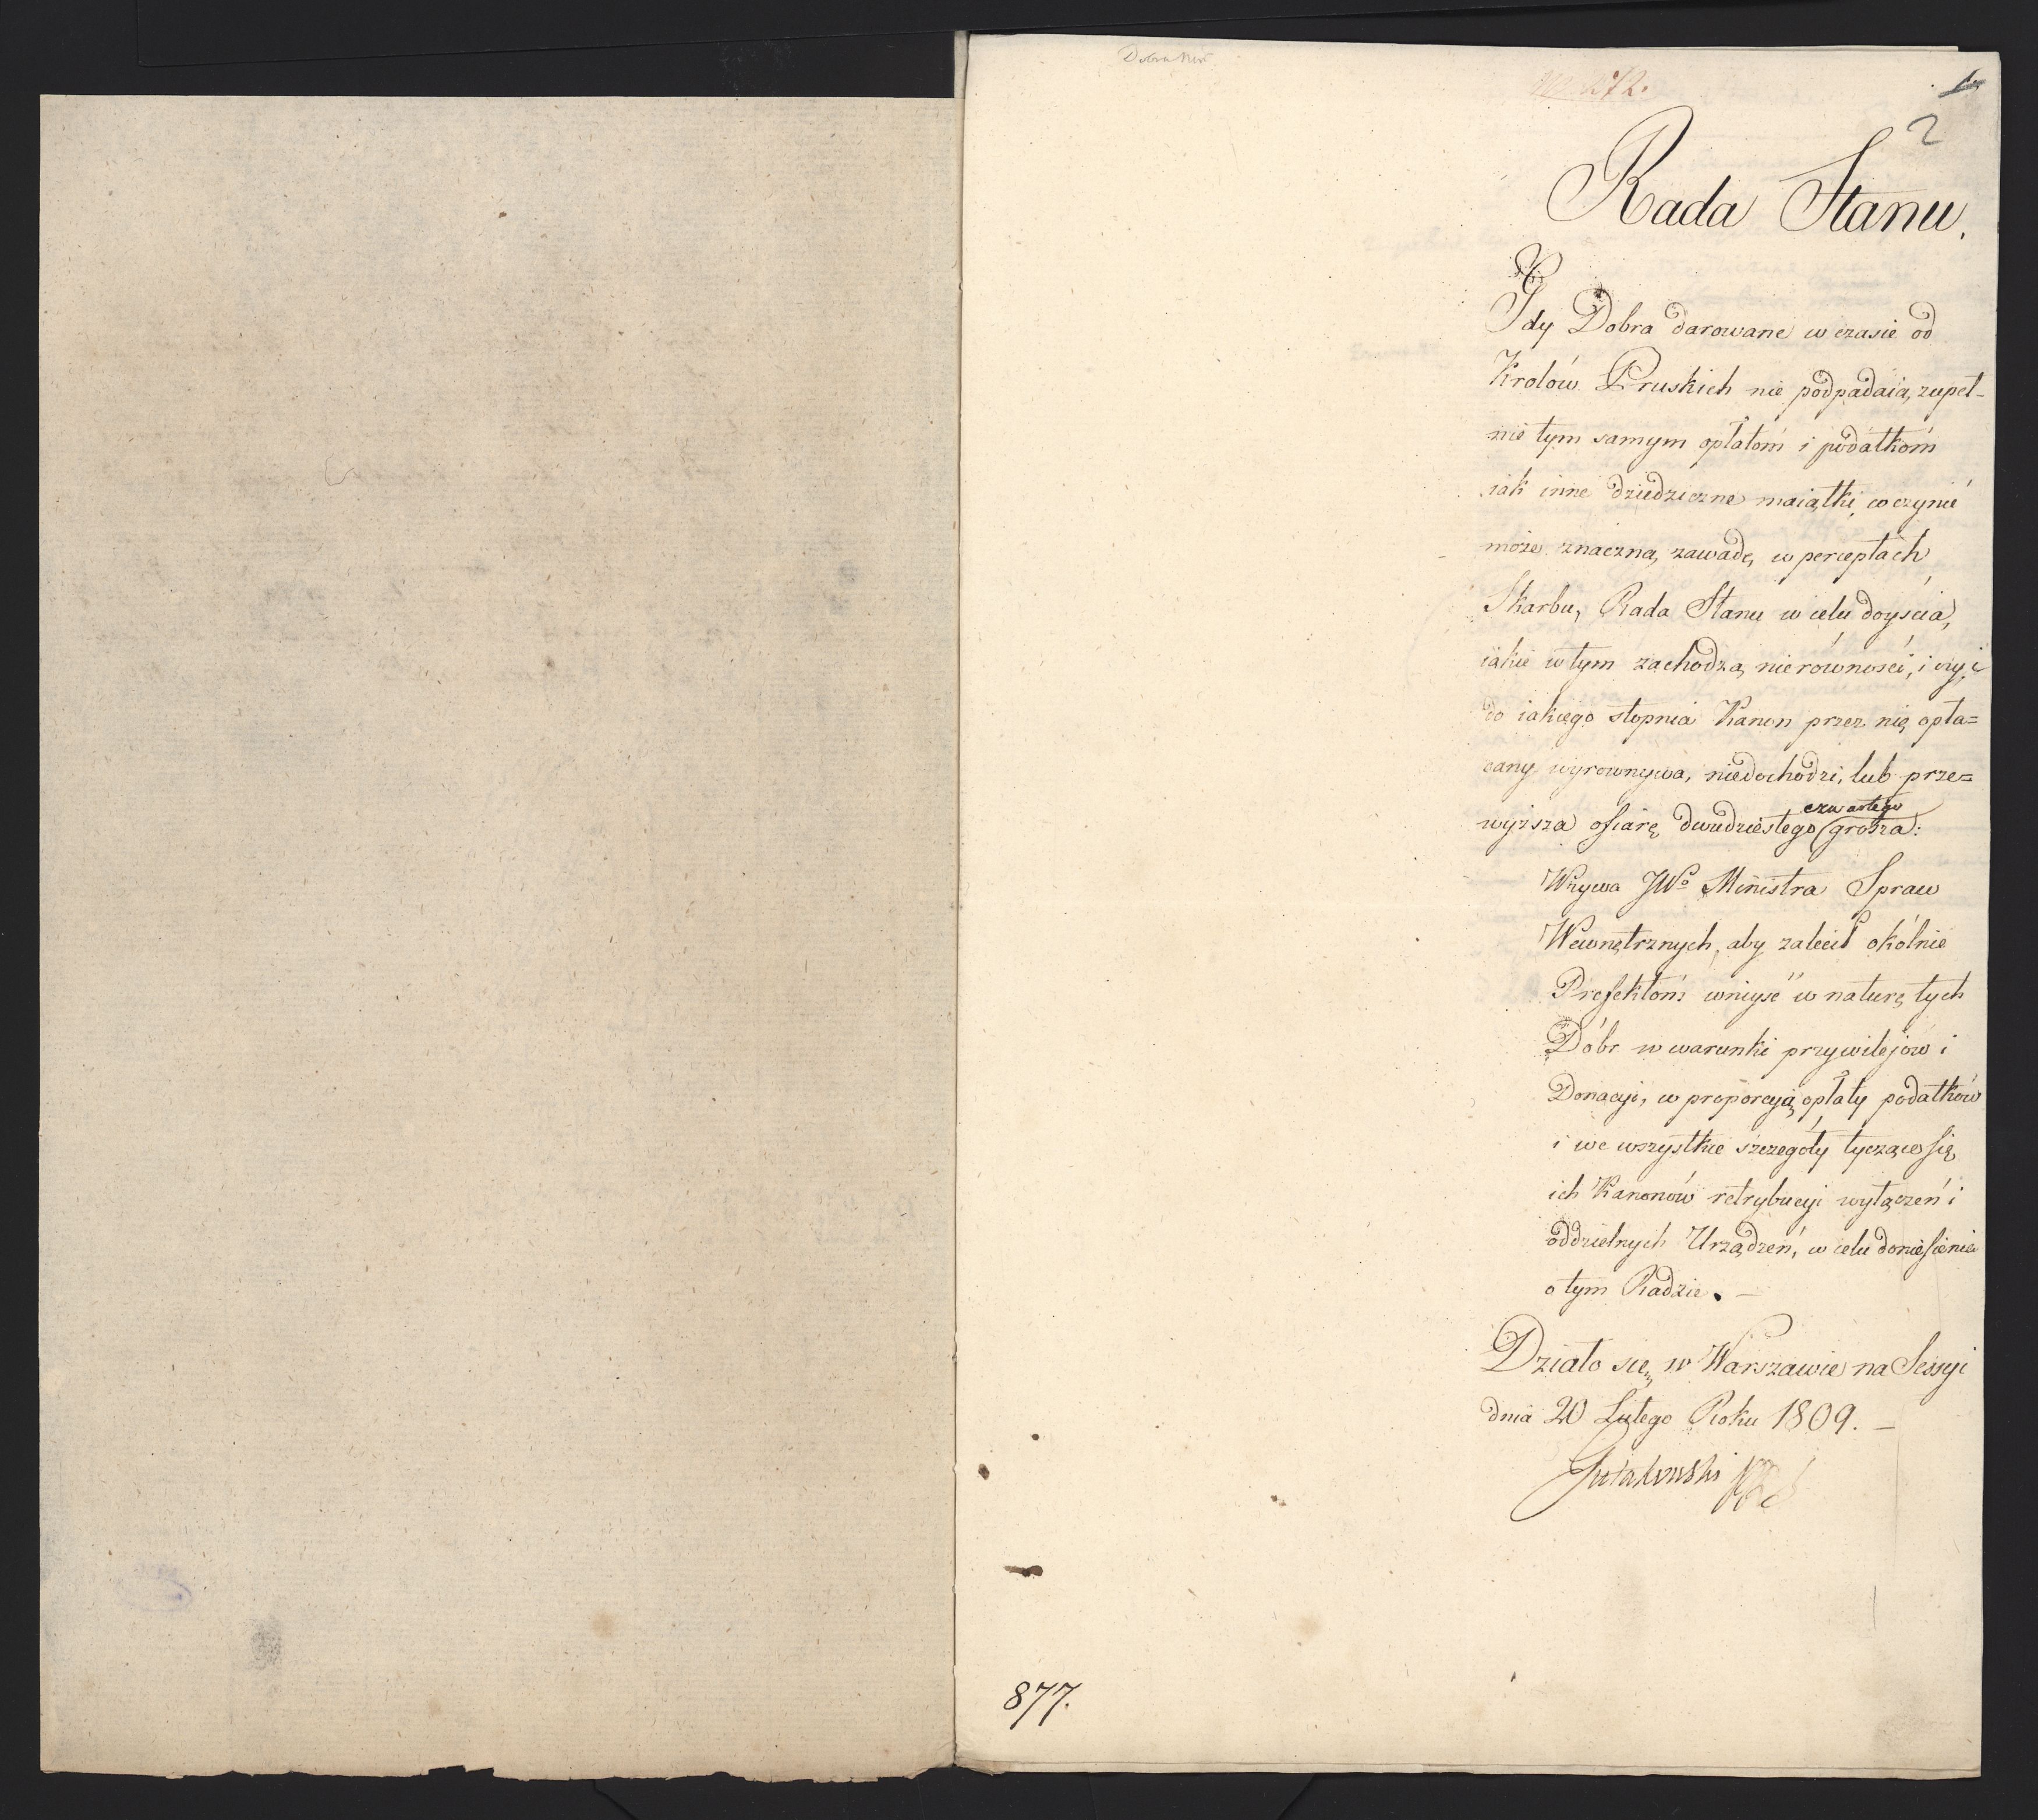 1.
2
Rada Stanu.
Gdy Dobra darowane w czasie od
Krolów Pruskich nie podpadaią zupeł-
nie tym samym opłatom i podatkom
iak inne dziedziczne maiątki, co czynić
może znaczną zawadę w perceptach
Skarbu, Rada Stanu w celu doyścia,
iakie w tym zachodzą nierówności, i czy, i
do iakiego stopnia Kanon przez nię opła=
cany wyrownywa, niedochodzi, lub prze=
czwartego
wyższa ofiarę dwudziestego grosza:
Wzywa JWo Ministra Spraw
Wewnętrznych, aby zalecił okólnie
Prefektom wniyść w naturę tych
Dóbr w warunki przywilejow i
Donacyi, w proporcyą opłaty podatków
i we wszystkie szczegoły tyczące się
ich Kanonów retrybucyi wyłączeń i
oddzielnych Urządzeń, w celu doniesienia
o tym Radzie. —
Działo się w Warszawie na Sessyi
dnia 20 Lutego Roku 1809. —
877.